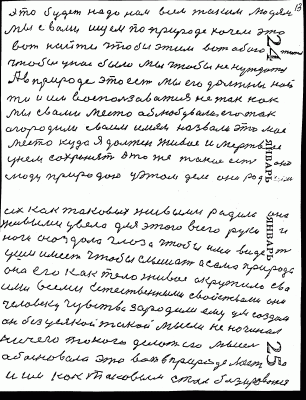 это будет надо нам всем таким людям 13
мы с вами ищем по природе кочем это
вот найти чтобы этим вот обого
чтобы у нас было мы чтобы не нуждали
А в природе это ест мы его должны най
ти и им воспользоватия не так как
мы с вами место облюбувала его так
огородили своим имям назвала это мое
место куда я должен живое и мертвое
унем сохранит это же такие ест оно
люди природою утом дело она родил
24 ЯНВАРЬ
сих как таковых живыми радила она
живыми увела для этого всего руки и
ноги создала глоза чтобы ими видет
ушм имест чтобы слышат а самою природа
она его как тело живое окружила сво
ими всеми естественными свойствами она
человеку чувства зародили ему ум создал
он без усякой такой мысли не начинал
ничего токого делат его мысел
обоснована это вот в природе
и им как таковым стал базироватся
ЯНВАРЬ 25